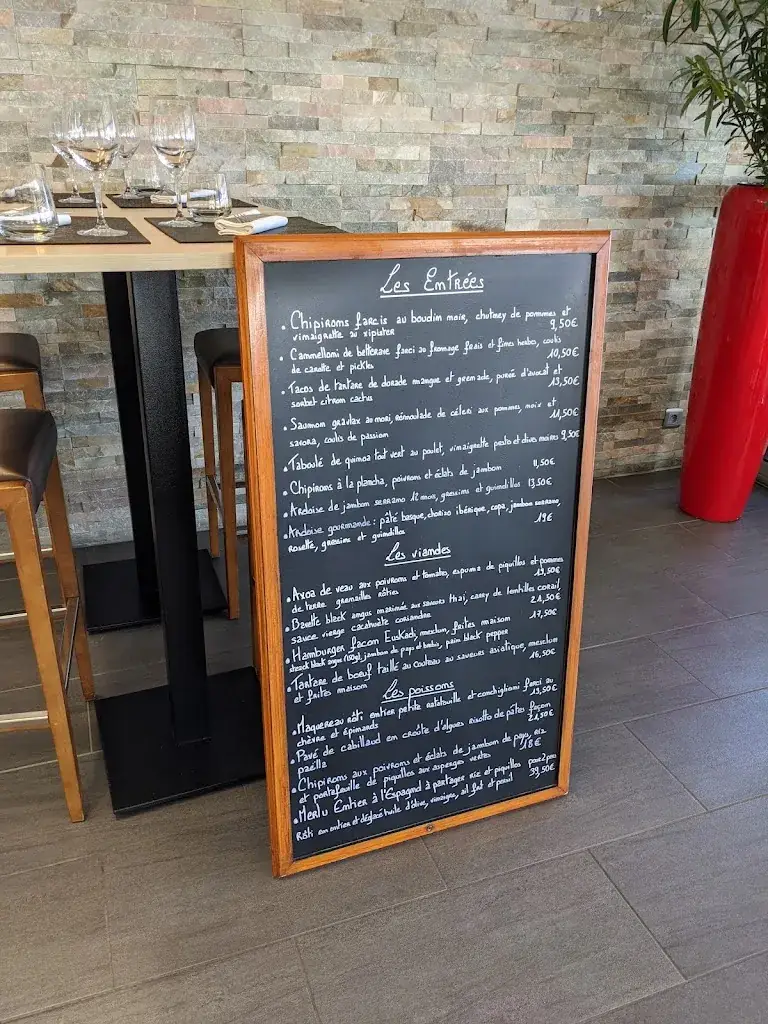 Les Entrées
• Chipirons farcis au boudin noir, chutney de pommes et
vinaigrette au xipister 9,50€
• Cannelloni de betterave farci au fromage frais et fines herbes, coulis
de carotte et pickles 10,50€
• Tacos de tartare de dorade mangue et grenade, purée d'avocat et
sorbet citron cactus 13,50€
• Saumon gravlax au nori, rémoulade de céleri aux pommes, noix et
coulis de passion 11,50€
• Taboulé de quinoa tout vert au poulet, vinaigrette pesto et olives noires 9,50€
• Chipirons à la plancha, poivrons et éclats de jambon 11,50€
• Ardoise de jambon serrano 12 mois, gressins et guindillas 13,50€
• Ardoise gourmande: pâté basque, chorizo ibérique, copa, jambon serrano,
rosette, gressins et guindillas 19€
Les viandes
• Axoa de veau aux poivrons et tomates, espuma de piquillos et pommes
de terre grenailles rôties 19,50€
• Bavette black angus marinée aux saveurs thaï, curry de lentilles corail,
sauce vierge cacahuète coriandre 21,50€
• Hamburger façon Euskadi, mesclun, frites maison 17,50€
steack black angus (150g), jambon de pays et brebis, pain black pepper
• Tartare de boeuf taillé au couteau au saveurs asiatique, mesclun
et frites maison 16,50€
Les poissons
• Maquereau rôti entier petite ratatouille et conchiglioni farci au
chèvre et épinards 19,50€
• Pavé de cabillaud en croûte d'algues risotto de pâtes façon
paëlla 21,50€
• Chipirons aux poivrons et éclats de jambon de pays, riz
et portefeuille de piquillos aux asperges vertes 18€
• Merlu Entier à l'Espagnol à partager riz et piquillos pour 2 pers
Rôti en entier et déglacé huile d'olive, vinaigre, ail frit et persil 39,50€